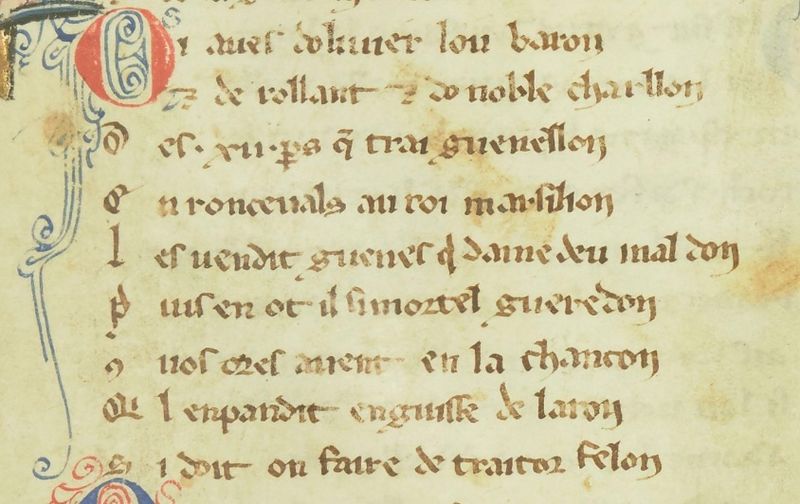 Oi aues doliuier lou baron
⁊ de rollant ⁊ do noble charllon
Des · xii · ꝑs q̃ trai guenellon
En ronceuals au roi marsilion
Les uendit guenes q̃ dame deu mal don
Puis en ot il si mortel gueredon
9 uos ores auent en la chancon
Ol enpandit enguisse de laron
Si doit on faire de traitor felon